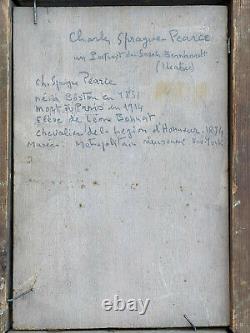 Charles Sprague-Pearce
un Portrait de Sarah Bernhardt
(theatre)
Ch. Sprague Pearce
né à Boston en 1851
mort à Paris en 1914
Elève de Léon Bonnat
chevalier de la Légion d'Honneur 1894
Musée Metropolitain New-York
© hatuns